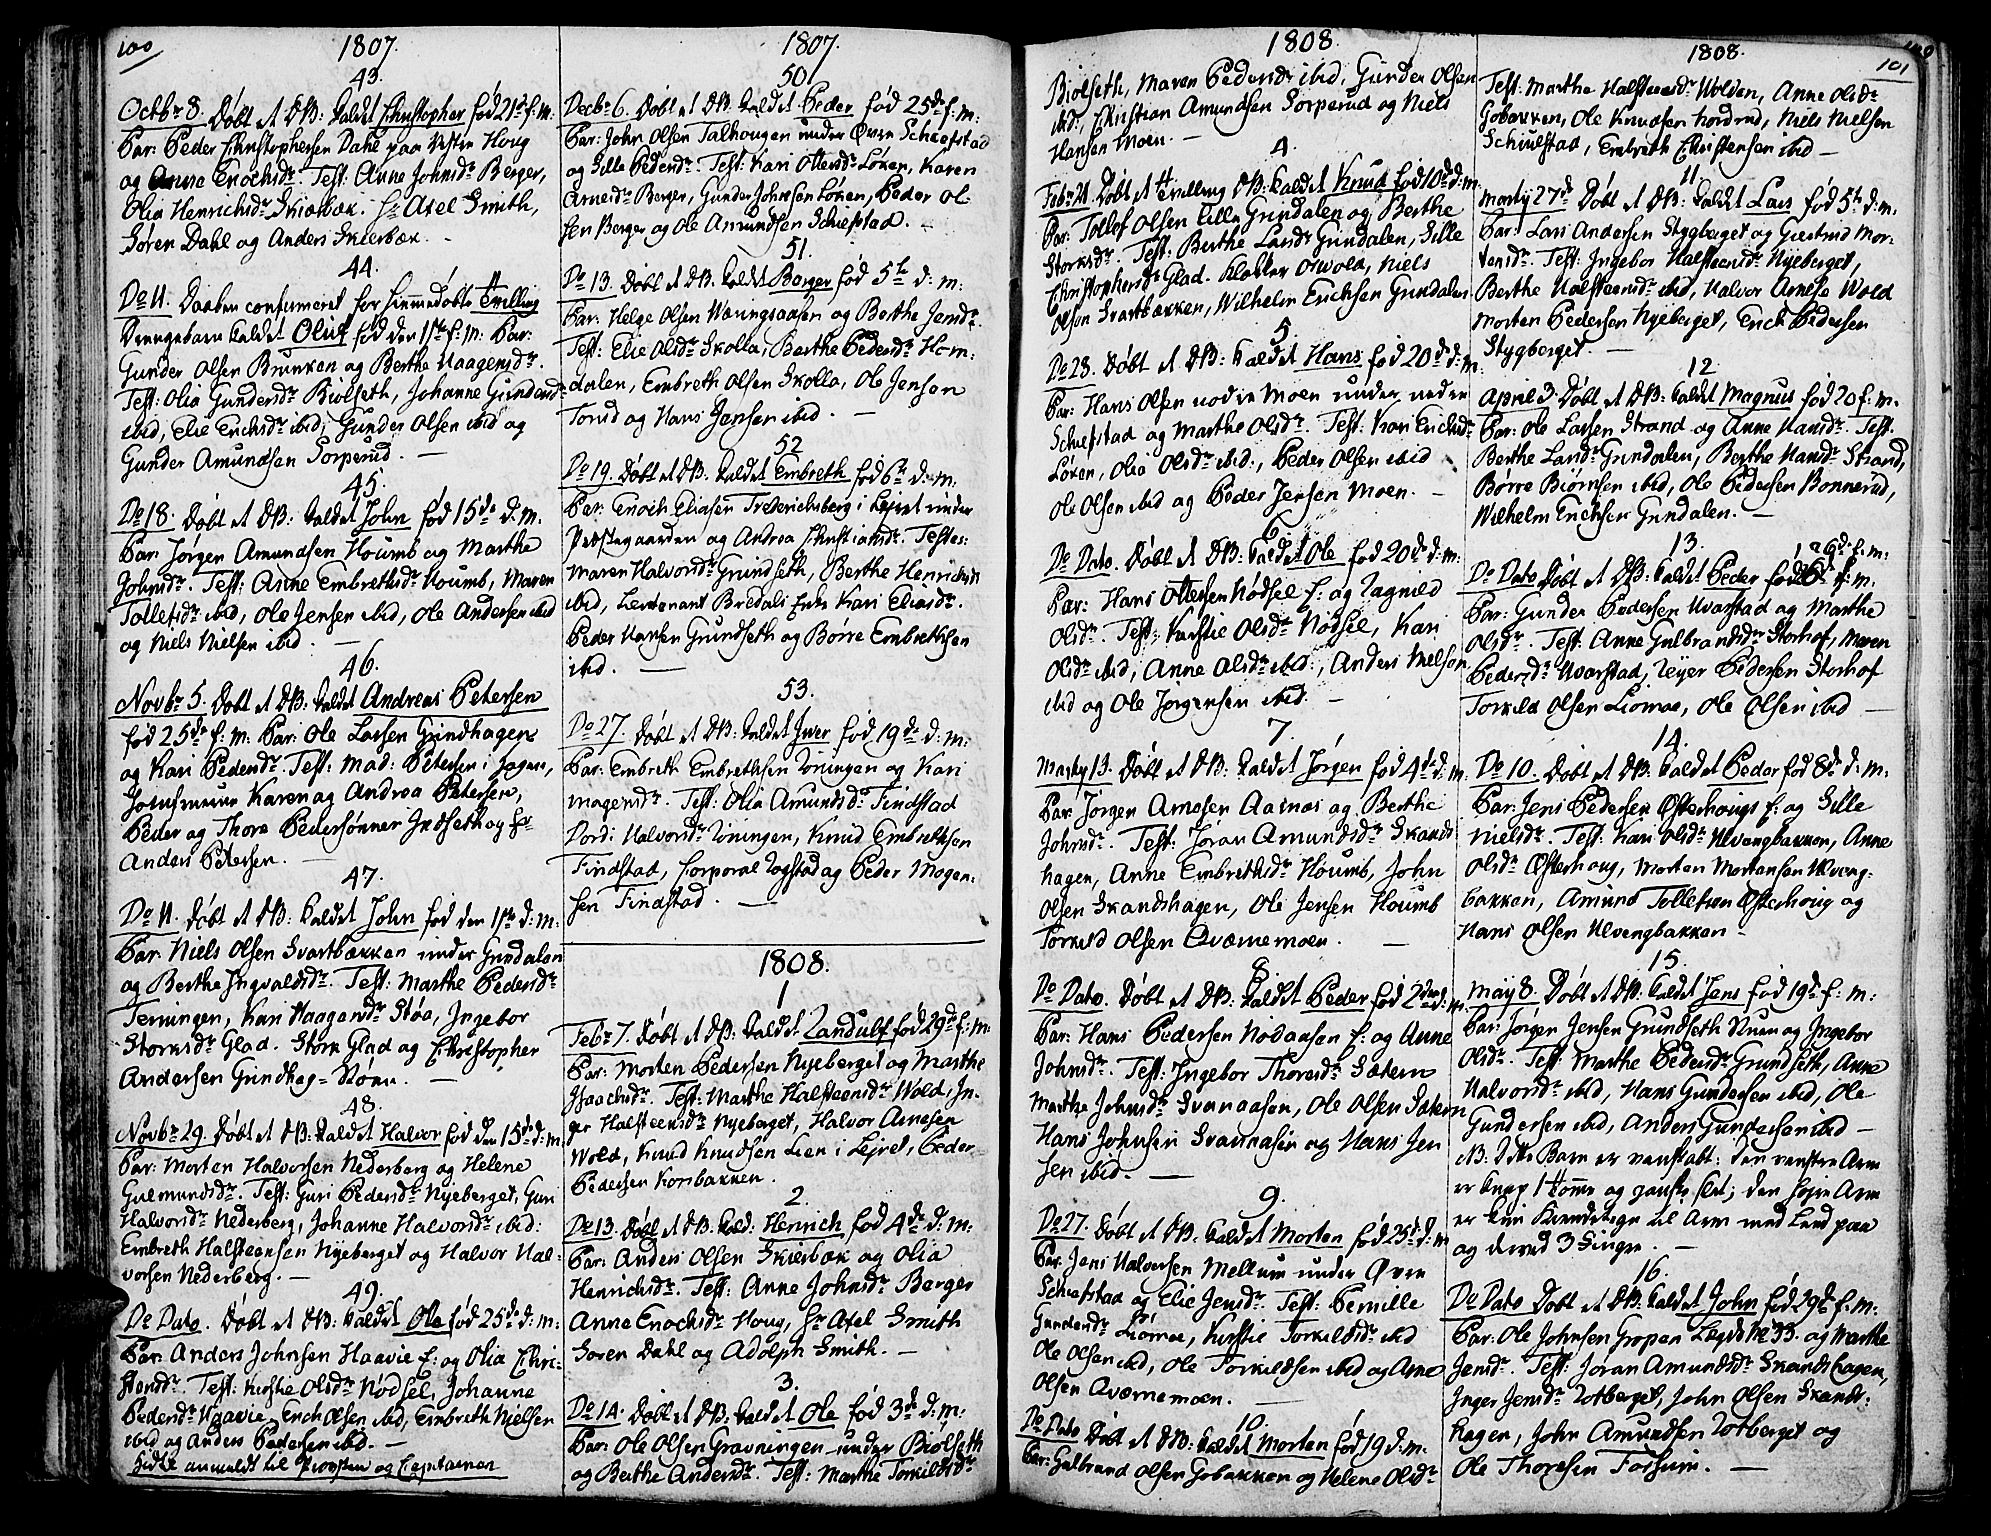 100
1807.
43
Octbr 8. Døbt et DB: kaldet Christopher fød 21de f: m:
Par: Peder Christophersen Dahl paa Vestre Houg
og Anne Enochsdr. Test: Anne Johnsdr Berger,
Olia Henrichsdr Skiærbæk. Hr Axel Smith,
Søren Dahl og Anders Skierbæk.
44
Do 11. Daaben confirmeret for hiemmedøbte Tvilling
Drengebarn kaldet Oluf fød den 1ste f: m: Par:
Gunder Olsen Brunken og Berthe Haagensdr.
Test: Olia Gundersdr Biølseth, Johanne Gundersdr
ibid, Elie Erichsdr ibid, Gunder Olsen ibid og
Gunder Amundsen Sorperud. —
45.
Do 18. Døbt et DB: kaldet John fød 15de d: m.
Par: Jørgen Amundsen Houmb og Marthe
Johnsdr. Test: Anne Embrethsdr Houmb, Maren
Tollefsdr ibid, Ole Jensen ibid, Ole Andersen ibid
og Niels Nielsen ibid. —
46
Novbr 5. Døbt et DB: kaldet Andreas Petersen
fød 25de f: m: Par: Ole Larsen Grindhagen
og Kari Pedersdr. Test: Mad: Petersen
Jomfruerne Karen og Andrea Petersen,
Peder og Thore Pedersønner Grndseth og Hr
Anders Petersen. —
47.
Do 11. Døbt et DB: kaldet John fød den 1ste d: m:
Par: Niels Olsen Svartbækken under Grndalen
og Berthe Ingvaldsdr. Test: Marthe Pedersdr
Terningen, Kari Haagensdr Støa, Ingebor
Storksdr Glad. Stork Glad og Christopher
Andersen Grindhag-Støen. —
48.
Novbr 29. Døbt et DB: kaldet Halvor fød den 15de d: m:
Par: Morten Halvorsen Nederberg og Helene
Gulmundsdr. Test: Guri Pedersdr Nyeberget, Guri
Halvorsdr Nederberg, Johanne Halvorsdr ibid:
Embreth Halsteensen Nyeberget og Halvor Hal-
vorsen Nederberg. —
49.
Do Dato. Døbt et DB: kaldet Ole fød 25de d: m:
Par: Anders Johnsen Haavie f: og Olia Chri-
stensdr. Test: Kirstie Olsdr Nødsel, Johanne
Pedersdr Haavie, Erich Olsen ibid, Embreth Nielsen
ibid og Anders Pedersen ibid. —
Sidste anmeldt til Provsten og Capitainen
1807.
50
Decbr 6. Døbt et DB: kaldet Peder fød 25de f: m:
Par: John Olsen Talhougen under Øvre Schiefstad
og Sille Pedersdr. Test: Kari Ottersdr Løken, Karen
Arnesdr Berger, Gunder Johnsen Løken, Peder Ol-
sen Berger og Ole Amundsen Schiefstad. —
51.
Do 13. Døbt et DB: kaldet Borger fød 5te d: m:
Par: Helge Olsen Wæringsaasen og Berthe Jensdr.
Test: Elie Olsdr Skolla, Berthe Pedersdr Horn-
dalen, Embreth Olsen Skolla, Ole Jensen
Torud og Hans Jensen ibid. —
52
Do 19. Døbt et DB: kaldet Embreth fød 6te d: m:
Par: Enoch Eliasen Frederichsberg i Lejret under
Præstegaarden og Andrea Christiansdr. Testes:
Maren Halvorsdr Grindseth, Berthe Henrichsdr
ibid, Lieutenant Bredals Enke Kari Eliasdr.
Peder Hansen Grundseth og Børre Embrethsen
ibid. —
53.
Do 27. Døbt et DB: kaldet Iver fød 19de d: m:
Par: Embreth Embrethsen Løningen og Kari
Mogensdr. Test: Olia Amundsdr Findstad
Dordi Halvorsdr Løningen, Knud Embrethsen
Findstad, Corporal Løgstad og Peder Mogen-
sen Findstad. —
1808.
1
Febr 7. Døbt et DB: kaldet Landulf fød 29de f: m:
Par: Morten Pedersen Nyeberget og Marthe
Isaachsdr. Test: Marthe Halsteensdr Wold, In-
ger Halsteensdr Nyeberget, Halvor Arnesen
Wold, Knud Knudsen Lien i Lejret, Peder
Pedersen Korsbakken.
2.
Do 13. Døbt et DB: kald: Henrich, fød 4de d: m:
Par: Anders Olsen Skierbæk og Olia
Henrichsdr. Test: Anne Johnsdr Berger
Anne Enochsdr Houg, Hr Axel Smith
Søren Dahl og Adolph Smith. —
3.
Do 14. Døbt et DB: kaldet Ole fød 3de d: m:
Par: Ole Olsen Gravningen under Biølseth
og Berthe Andersdr. Test: Marthe Torkildsdr
1808.
Biølseth, Maren Pedersdr ibid, Gunder Olsen
ibid., Christian Amundsen Sorperud og Niels
Hansen Moen. —
4.
Febr 21. Døbt et Tvilling DB: kaldet Knud fød 10de d: m:
Par: Tollef Olsen Lille Grindalen og Berthe
Storksdr. Test: Berthe Larsdr Grindalen, Sille
Christophersdr Glad. Klokker Oswold, Niels
Olsen Svartbækken, Wilhelm Erichsen Grindalen
5
Do 28. Døbt et DB: kaldet Hans fød 20de d: m.
Par: Hans Olsen nordre Moen under nedre
Schiefstad og Marthe Olsdr. Test: Kari Erichsdr
Løken, Olia Olsdr ibid., Peder Olsen ibid
Ole Olsen ibid og Peder Jensen Moen. —
6
Do Dato. Døbt et DB: kaldet Ole fød 20de d: m:
Par: Hans Ottersen Nødsel f: og Ragnild
Olsdr. Test: Kirstie Olsdr Nødsel, Kari
Olsdr ibid, Anne Olsdr ibid., Anders Nielsen
ibid og Ole Jørgensen ibid. —
7.
Marty 13. Døbt et DB: kaldet Jørgen fød 4de d: m.
Par: Jørgen Arnesen Aasnæs og Berthe
Johnsdr. Test: Jøran Amundsdr Skands-
hagen, Anne Embrethsdr Houmb, John
Olsen Skandshagen, Ole Jensen Houmb
Torkild Olsen Qværnemoen. —
8
Do Dato. Døbt et DB: kaldet Peder fød 2den d: m.
Par: Hans Pedersen Nødaasen f: og Anne
Johnsdr. Test: Ingebor Thoresdr Sætern
Marthe Johnsdr Svenaasen, Ole Olsen Sætern
Hans Johnsen Svenaasen og Hans Jen
sen ibid. —
9.
Do 27. Døbt et DB: kaldet Morten fød 23de d: m
Par: Jens Halvorsen Mellum under Øvre
Schiefstad og Elie Jensdr. Test: Pernille
Gundersdr Liømoe, Kirstie Torkildsdr ibid
Ole Olsen ibid, Ole Torkildsen ibid og Arne
Olsen Qværnemoen. —
10.
Do Dato Døbt et DB: kaldet Morten fød 19 d: m:
Par: Gulbrand Olsen Gobakken og Helene Olsdr
1808.
101
Test: Marthe Halsteensdr Wolden, Anne Olsdr
Gobakken, Ole Knudsen Nordrud, Niels Nielsen
Schiulstad, Embreth Christensen ibid —
11.
Marty 27de Døbt et DB: kaldet Lars fød 5te d: m:
Par: Lars Andersen Stygberget og Giertrud Mor-
tensdr. Test: Ingebor Halsteensdr Nyeberget,
Berthe Halsteensdr ibid, Halvor Arnese Wold
Morten Pedersen Nyeberget, Erich Pedersen
Stygberget. —
12
April 3. Døbt et DB: kaldet Magnus fød 20 f: m.
Par: Ole Larsen Strand og Anne Hansdr. Test.
Berthe Larsdr Grindalen, Berthe Hansdr Strand,
Børre Biørnsen ibid, Ole Pedersen Bonnerud,
Wilhelm Erichsen Grindalen. —
13.
Do Dato Døbt et DB: kaldet Peder fød 6de f: m.
Par: Gunder Pedersen Uvarstad og Marthe
Olsdr. Test: Anne Gulbrandsdr Storhof, Maren
Pedersdr Uvarstad, Lejer Pedersen Storhof
Torkild Olsen Liømoe, Ole Olsen ibid —
14
Do 10. Døbt et DB: kaldet Peder fød 8de d: m.
Par: Jens Pedersen Østerhougs f: og Sille
Nielsdr. Test: Kari Olsdr Ulvengbakken, Anne
Olsdr Østerhoug, Morten Mortensen Ulveng-
bakken, Amund Tollefsen Østerhoug og
Hans Olsen Ulvengbakken —
15.
May 8. Døbt et DB: kaldet Jens fød 19de f: m:
Par: Jørgen Jensen Grundseth og Ingebor
Olsdr. Test: Marthe Pedersdr Grundseth, Anne
Halvorsdr ibid, Hans Gundersen ibid, Ole
Gundersen ibid, Anders Gundersen ibid —
NB: dette Barn er vanskabt: den venstre Arm
er knap 1 Tomme og ganske slet; den højre Arm
er kun Kiendetegn til Arm med Leed paa
og derved 3 Fingre. —
16.
Do Dato Døbt et DB: kaldet John fød 29de f: m:
Par: Ole Johnsen Gropen Lægd No 33. og Marthe
Jensdr. Test: Jøran Amundsdr Skandshagen,
Inger Jensdr Lotberget, John Olsen Skands-
hagen, John Amundsen Lotberget og
Ole Thoresen Forsum. —